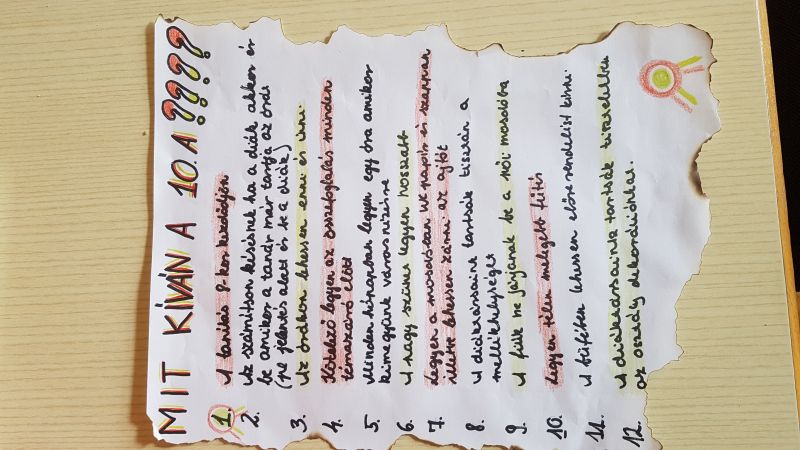 MIT KÍVÁN A 10.A ????
1. A tanítás 9-kor kezdődjön
2. Az számítson késésnek ha a diák akkor ér
be amikor a tanár már tartja az órát
(ne jelentés alatt ér be a diák)
3. Az órákon lehessen enni és inni.
4. Kötelező legyen az összefoglalás minden
témazáró előtt
5. Minden hónapban legyen egy óra amikor
kimegyünk városnézésre
6. A nagy szünet legyen hosszabb
7. Legyen a mosdóban wc papír és szappan
illetve lehessen zárni az ajtót
8. A diáktársaink tartsák tisztán a
mellékhelységet
9. A fiúk ne járjanak be a női mosdóba
10. Legyen télen melegebb fűtés
11. A büfében lehessen előre rendelést kérni.
12. A diáktársaink tartsák tiszteletben
az osztály dekorációkat.